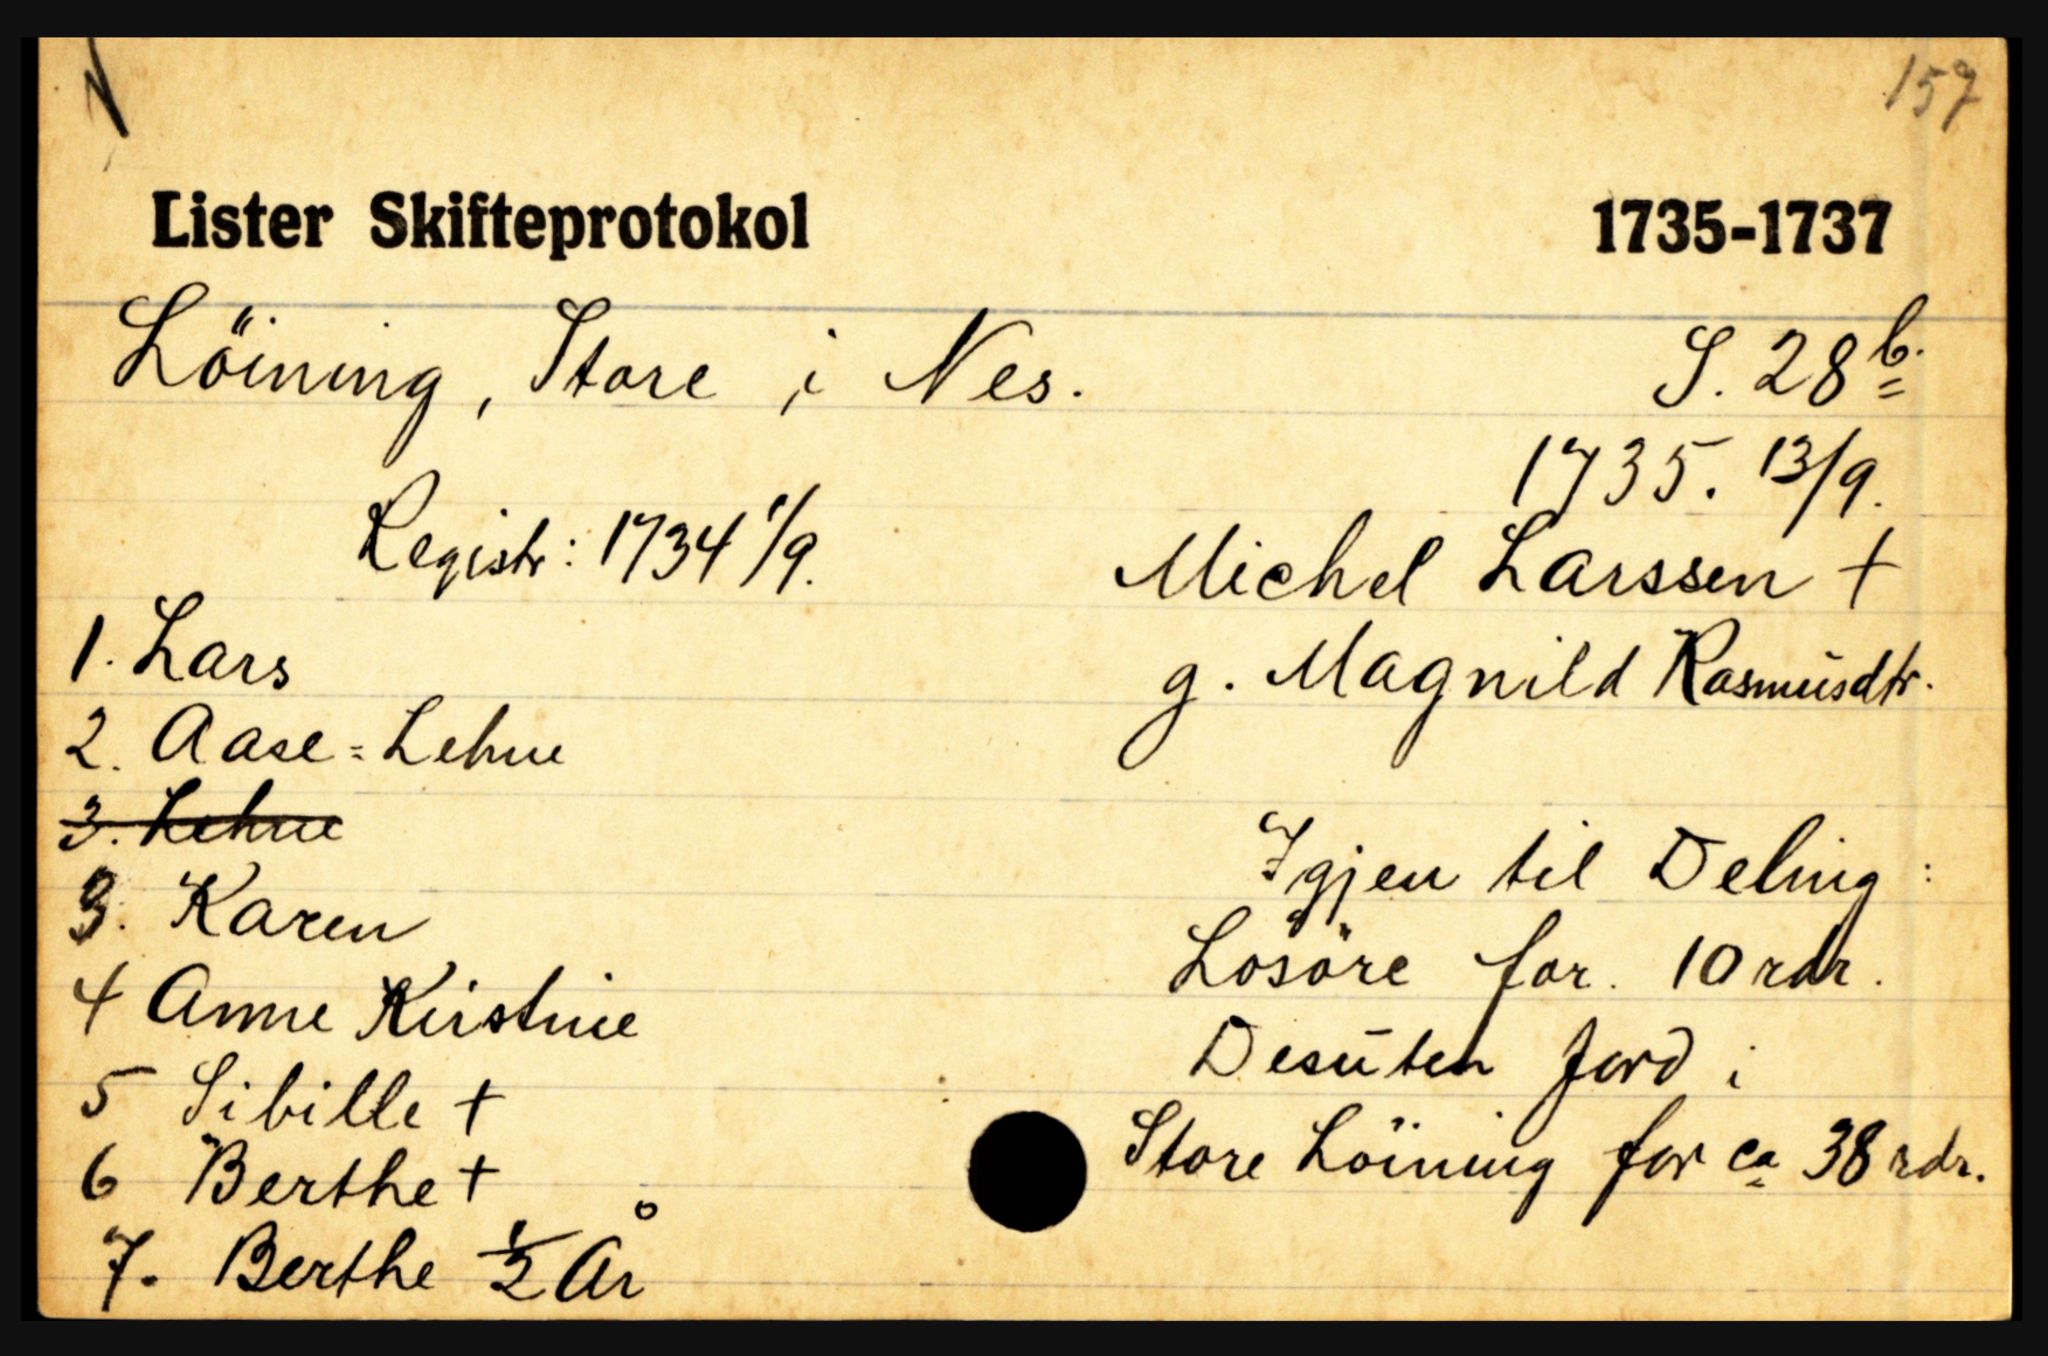 157
Lister Skifteprotokol 1735-1737
Löining, Store i Nes. S. 28 b.
1735. 13/9.
Registr: 1734 1/9.
Michel Larssen +
g. Magnild Rasmusdtr.
1. Lars
2. Aase-Lehne
3. Lehne
3. Karen
4 Anne Kirstine
5 Sibille +
6 Berthe +
7. Berthe 1/2 År
Igjen til Deling:
Lösöre for 10 rdr.
Desuten Jord i
Store Löining for ca 38 rdr.